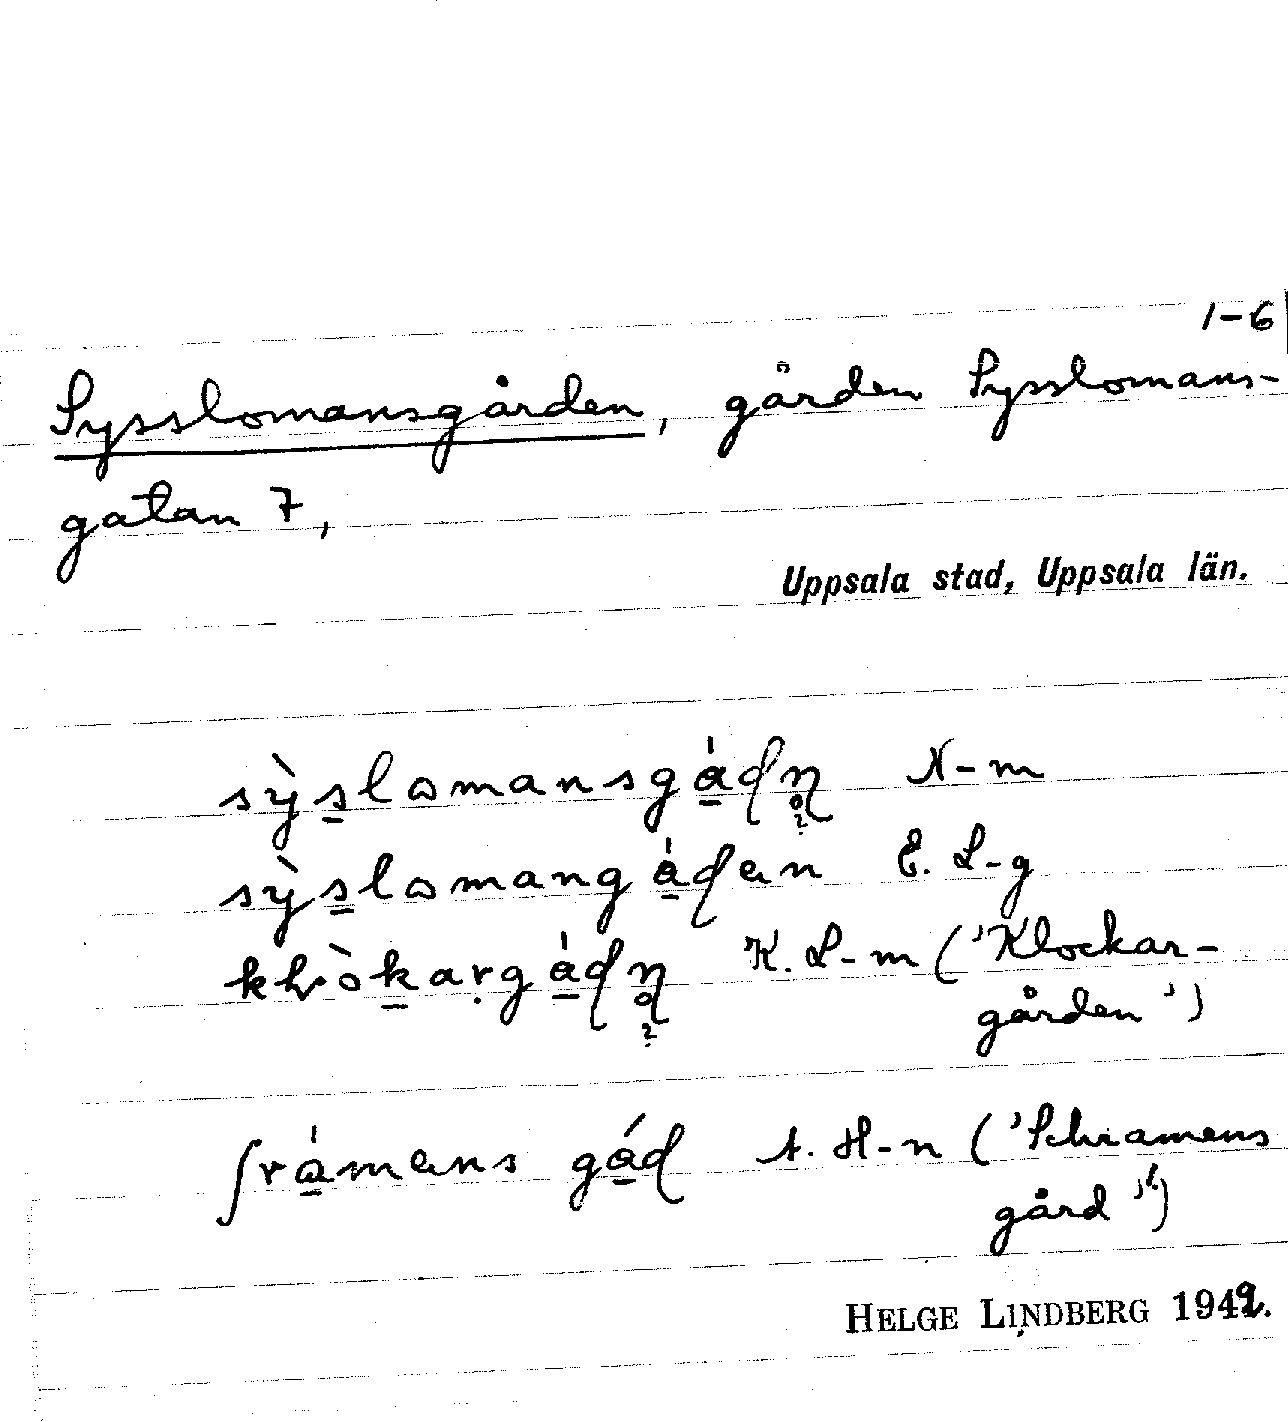 1-6
Sysslomansgården, gården Sysslomans-
gatan 7,
Uppsala stad, Uppsala län.
sỳs̠lomansgá̠ɖn̥ N-m
sỳs̠lomangá̠ɖen E. L-g
klòk̠aṛgá̠ɖn̥ K. L-m ('Klockar-
gården')
ʃrá̠mens gá̠ɖ A. H-n ('Schramens
gård')
HELGE LINDBERG 1942.